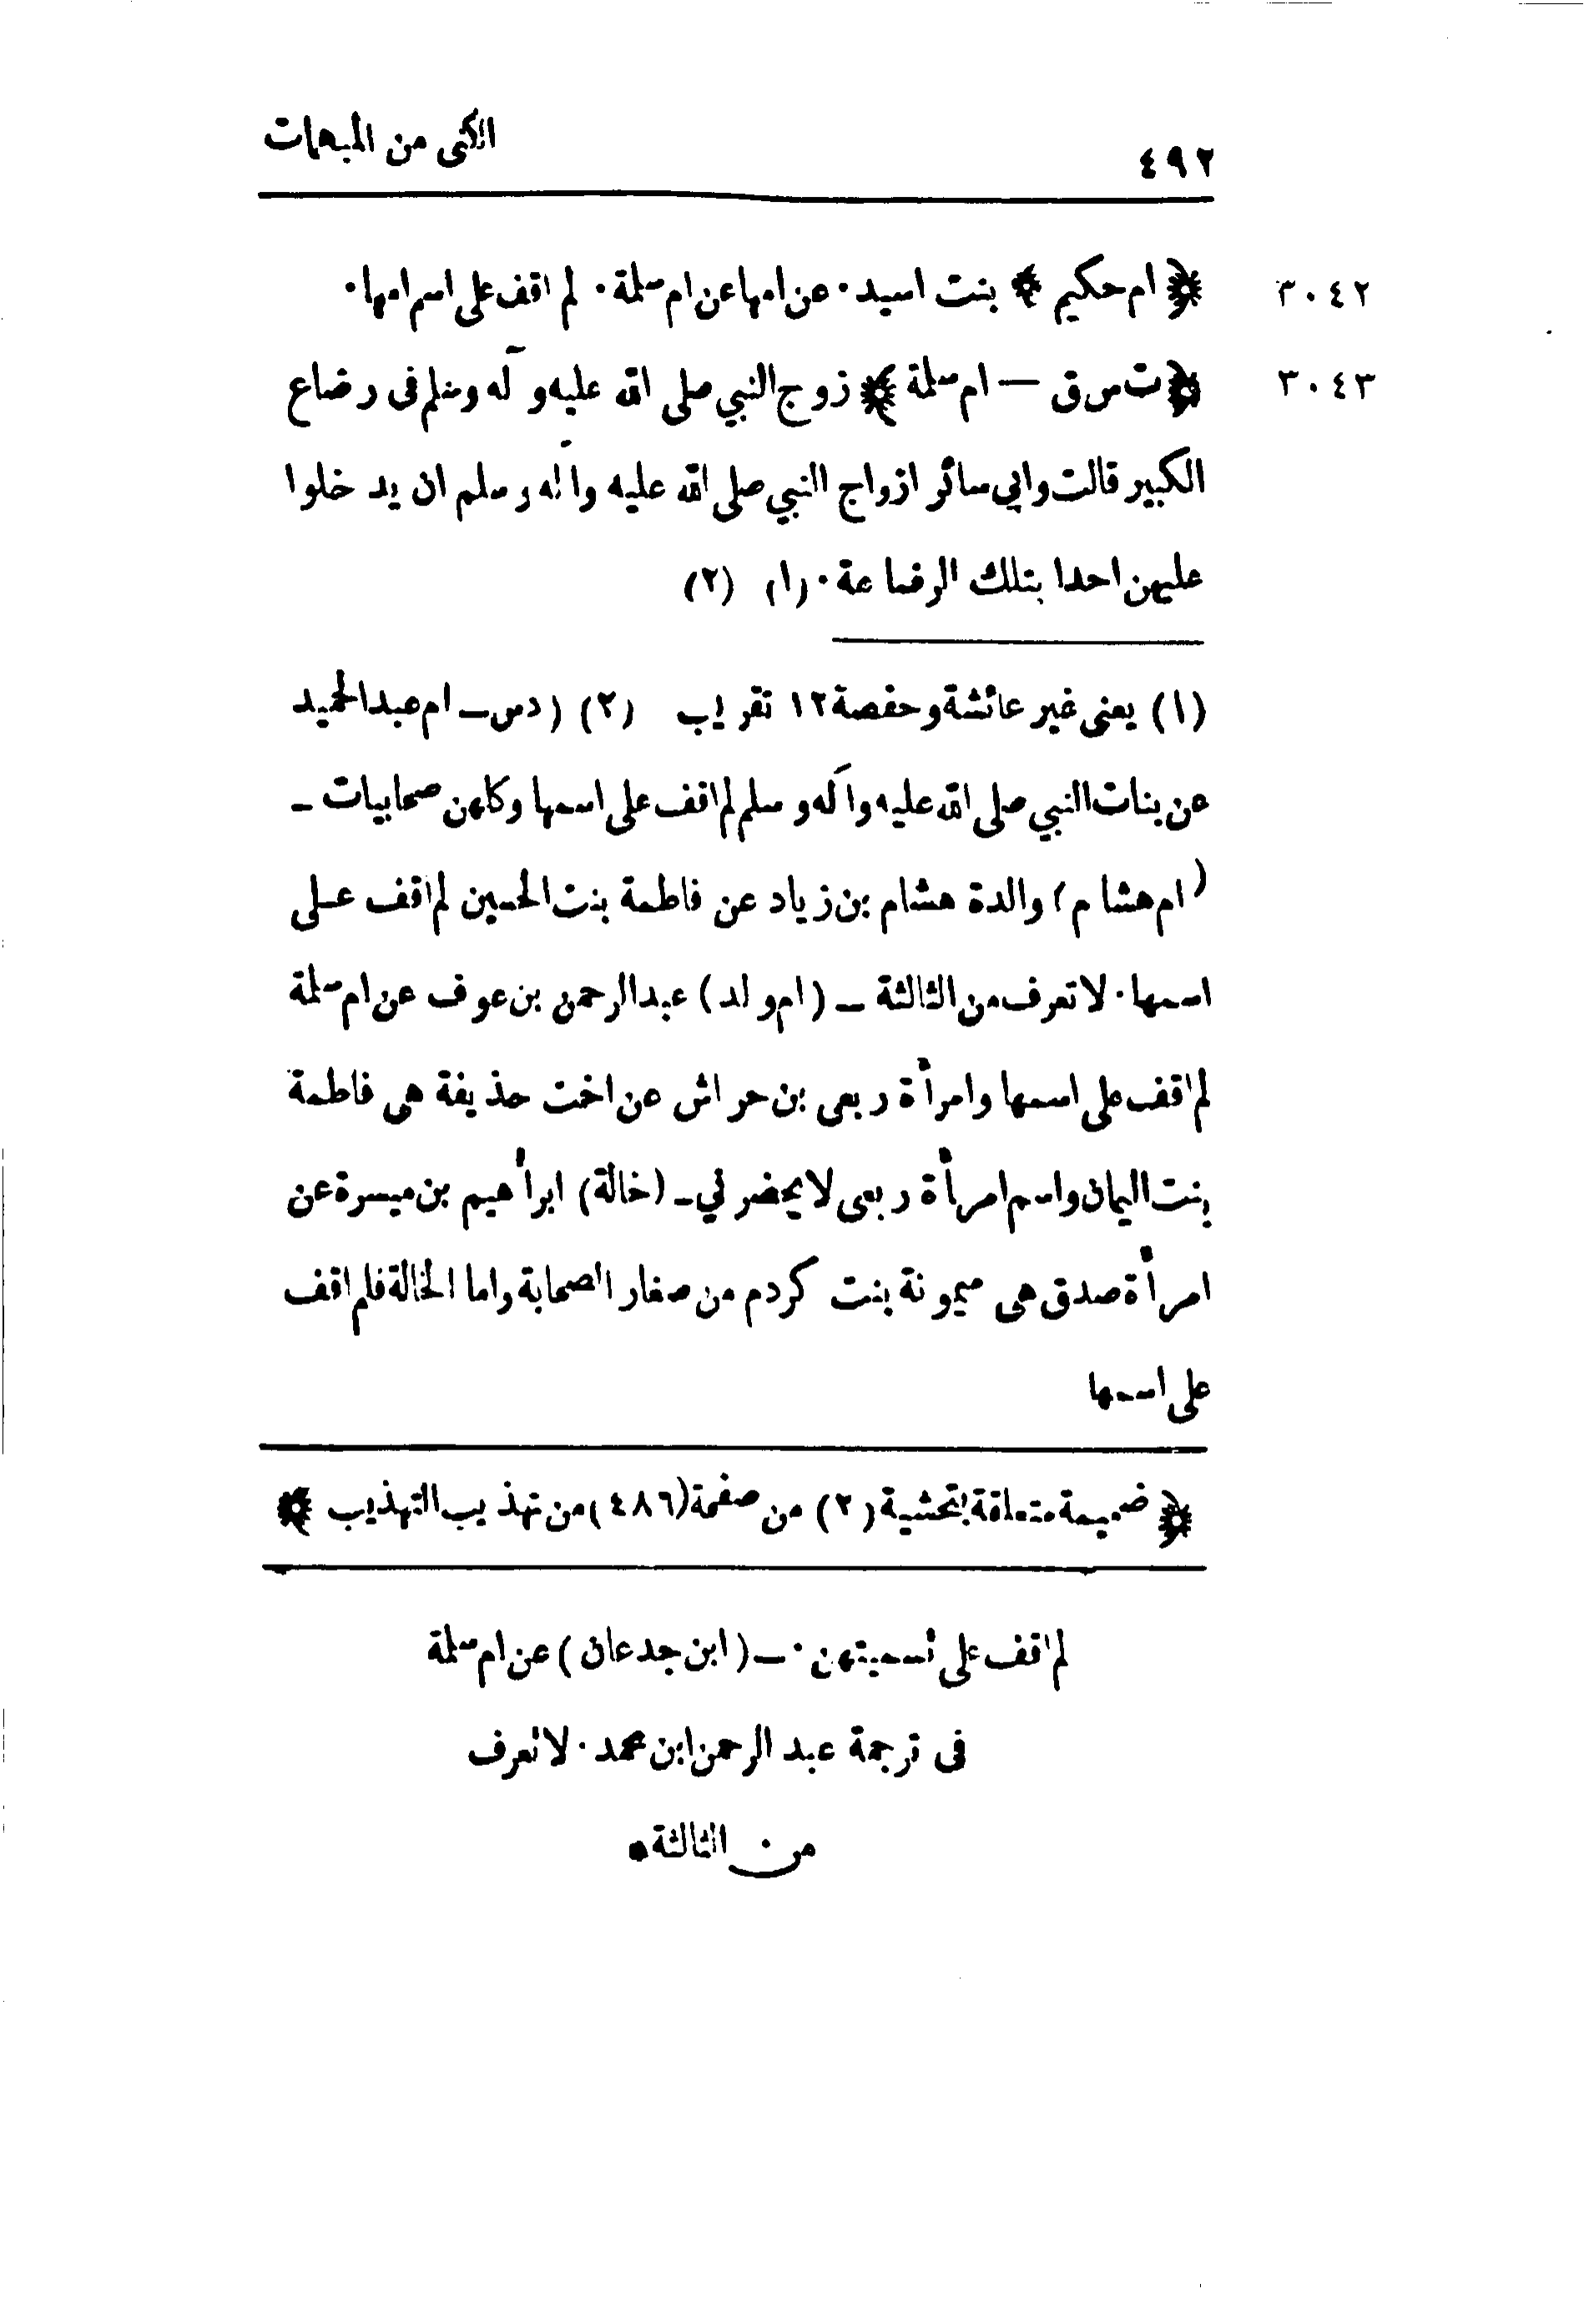 ٤٩٢
الكنى من المبهمات
٣٠٤٢
﴿ ام حكيم ﴾ بنت اسيد · عن امها عن ام سلمة · لم اقف على اسم امها ·
٣٠٤٣
﴿ ت س ق — ام سلمة ﴾ زوج النبي صلى الله عليه وآله وسلم فى رضاع
الكبير قالت وابي سائر ازواج النبي صلى الله عليه وآله وسلم ان يدخلوا
عليهن احدا بتلك الرضاعة · (١) (٢)
(١) يعنى غير عائشة وحفصة ١٢ تقريب (٢) (دس ـ ام عبدالحميد
عن بنات النبي صلى الله عليه وآله وسلم لم اقف على اسمها وكلهن صحابيات ـ
(ام هشام) والدة هشام بن زياد عن فاطمة بنت الحسين لم اقف على
اسمها · لا تعرف من الثالثة ـ (ام ولد) عبدالرحمن بن عوف عن ام سلمة
لم اقف على اسمها وامرأة ربعى بن حراش عن اخت حذيفة هى فاطمة
بنت اليمان واسم امرأة ربعى لا يحضرني ـ (خالة) ابرأهيم بن ميسرة عن
امرأة صدق هى ميمونة بنت كردم من صغار الصحابة واما الخالة فلم اقف
على اسمها
﴿ ضميمة متعلقة بتحشية (٢) من صفحة (٤٨٦) من تهذيب التهذيب ﴾
لم اقف على تسميتهن · ـ (ابن جدعان) عن ام سلمة
فى ترجمة عبد الرحمن ابن محمد · لا تعرف
من الثالثة •